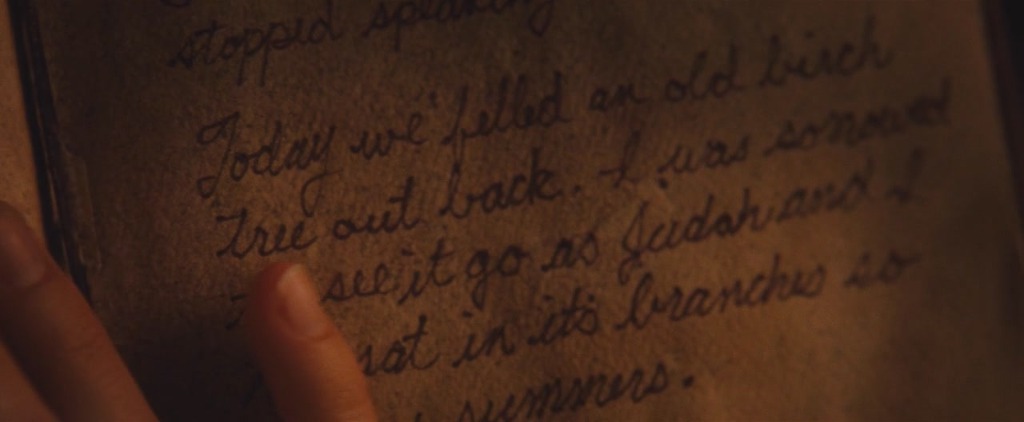 stopped speaking
Today we felled an old birch
Tree out back. I was sorrowed
see it go as Judah and I
sat in its branches so
summers.